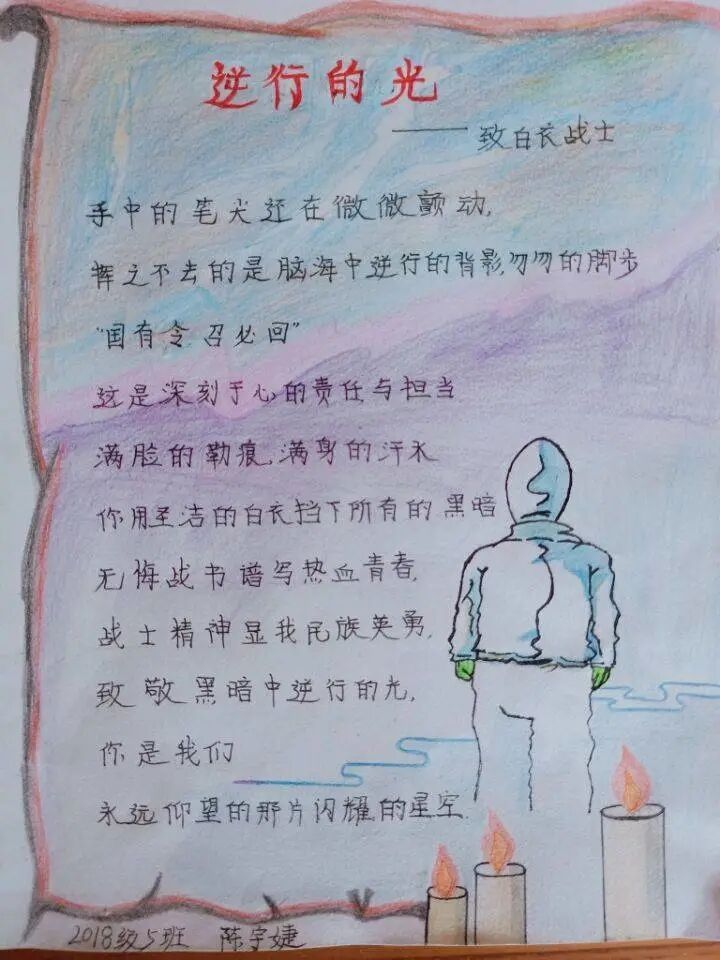 逆行的光
——致白衣战士
手中的笔尖还在微微颤动,
挥之不去的是脑海中逆行的背影,匆匆的脚步
“国有令 召必回”
这是深刻于心的责任与担当
满脸的勒痕,满身的汗水
你用圣洁的白衣挡下所有的黑暗
无悔战书谱写热血青春,
战士精神显我民族英勇,
致敬黑暗中逆行的光,
你是我们
永远仰望的那片闪耀的星空.
2018级5班 陈宇婕